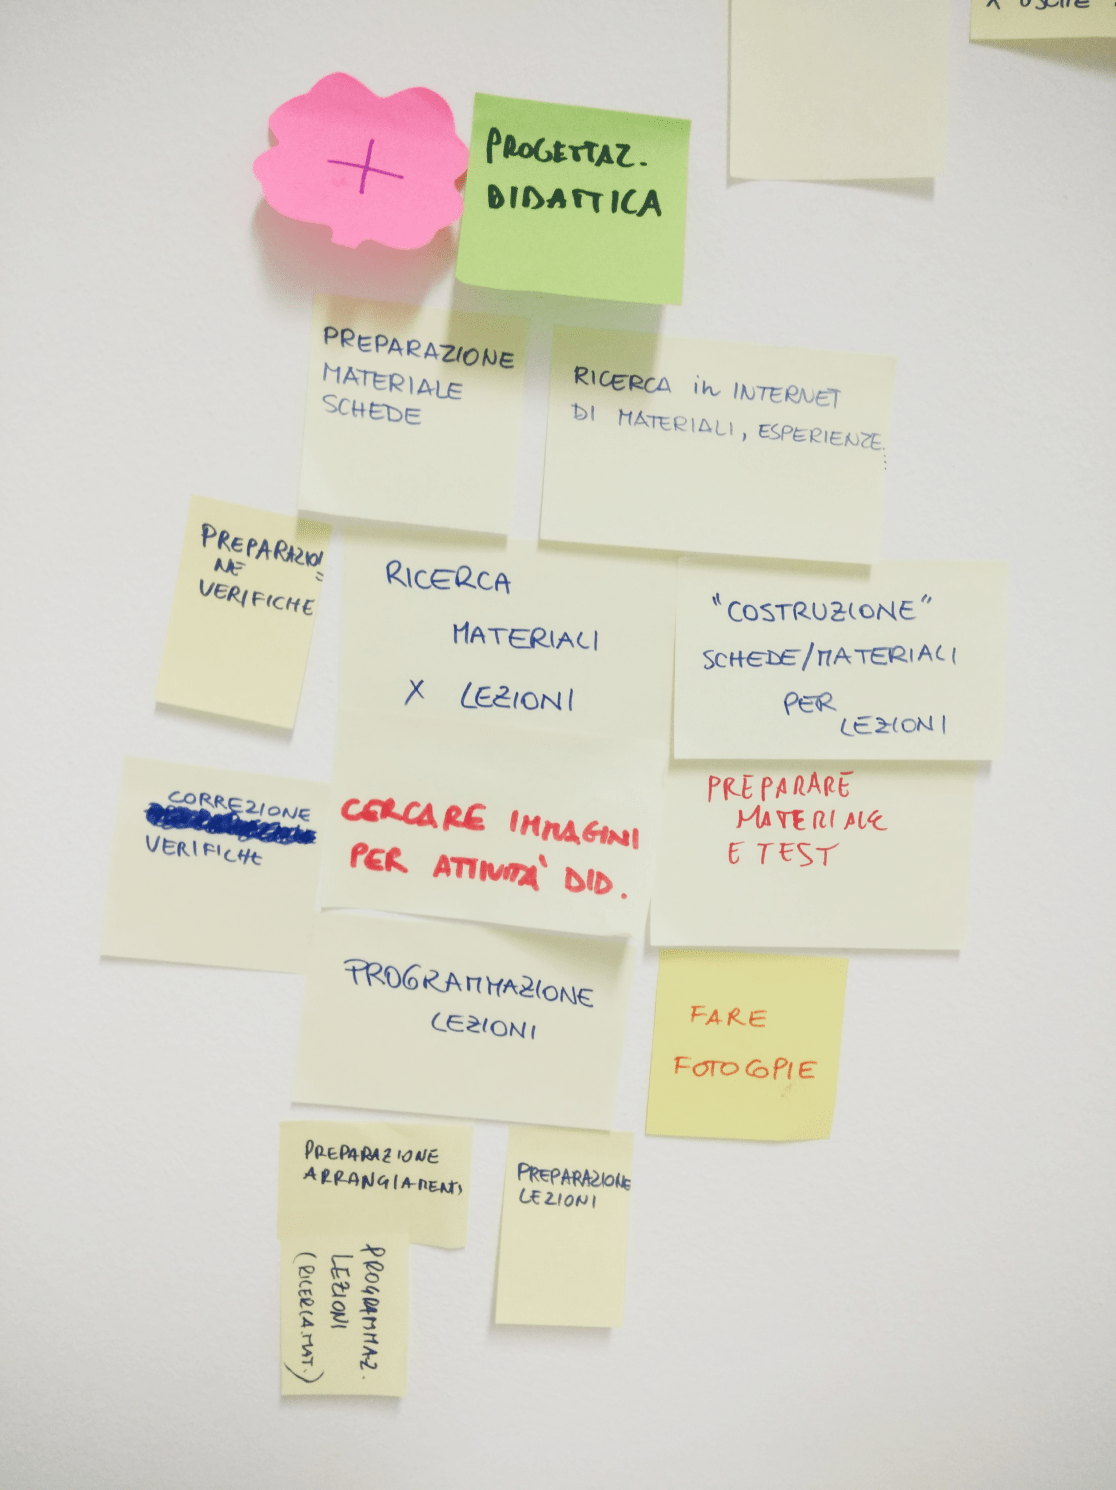 X USCITE
+
PROGETTAZ.
DIDATTICA
PREPARAZIONE
MATERIALE
SCHEDE
RICERCA in INTERNET
DI MATERIALI, ESPERIENZE...
PREPARAZIO
NE =
VERIFICHE
RICERCA
MATERIALI
X LEZIONI
"COSTRUZIONE"
SCHEDE/MATERIALI
PER
LEZIONI
CORREZIONE
VERIFICHE
CERCARE IMMAGINI
PER ATTIVITÀ DID.
PREPARARE
MATERIALE
E TEST
PROGRAMMAZIONE
LEZIONI
FARE
FOTOCOPIE
PREPARAZIONE
ARRANGIAMENTI
PREPARAZIONE
LEZIONI
PROGRAMMAZ.
LEZIONI
(RICERCA MAT.)